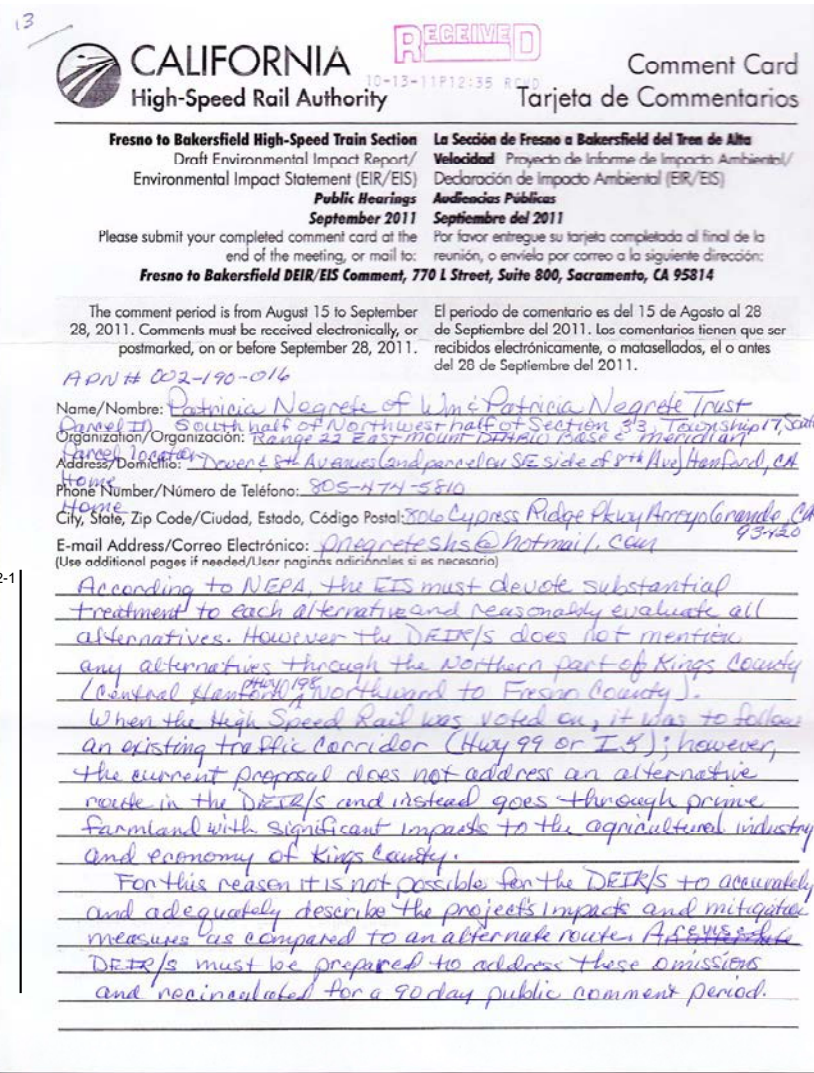 13
CALIFORNIA
High-Speed Rail Authority
RECEIVED
10-13-11P12:35 RCVD
Comment Card
Tarjeta de Commentarios
Fresno to Bakersfield High-Speed Train Section
Draft Environmental Impact Report/
Environmental Impact Statement (EIR/EIS)
Public Hearings
September 2011
Please submit your completed comment card at the
end of the meeting, or mail to:
La Sección de Fresno a Bakersfield del Tren de Alta
Velocidad Proyecto de Informe de Impacto Ambiental/
Declaración de Impacto Ambiental (EIR/EIS)
Audiencias Públicas
Septiembre del 2011
Por favor entregue su tarjeta completada al final de la
reunión, o envíela por correo a la siguiente dirección:
Fresno to Bakersfield DEIR/EIS Comment, 770 L Street, Suite 800, Sacramento, CA 95814
The comment period is from August 15 to September
28, 2011. Comments must be received electronically, or
postmarked, on or before September 28, 2011.
El periodo de comentario es del 15 de Agosto al 28
de Septiembre del 2011. Los comentarios tienen que ser
recibidos electrónicamente, o matasellados, el o antes
del 28 de Septiembre del 2011.
APN# 002-190-016
Name/Nombre: Patricia Negrete of Wm & Patricia Negrete Trust
Parcel ID South half of Northwest half of Section 33, Township 17, South
Organization/Organización: Range 22 East Mount Diablo Base & meridian
Parcel location
Address/Domicilio: Dover & 8th Avenues (and parcel on SE side of 8th Ave) Hanford, CA
Home
Phone Number/Número de Teléfono: 805-474-5810
Home
City, State, Zip Code/Ciudad, Estado, Código Postal: 806 Cypress Ridge Pkwy Arroyo Grande, CA
93420
E-mail Address/Correo Electrónico: pnegreteshs@hotmail.com
(Use additional pages if needed/Usar paginas adicionales si es necesario)
2-1
According to NEPA, the EIS must devote substantial
treatment to each alternative and reasonably evaluate all
alternatives. However the DEIR/S does not mention
any alternatives through the Northern part of Kings County
(Central Hanford Hwy 198 Northward to Fresno County).
When the High Speed Rail was voted on, it was to follow
an existing traffic corridor (Hwy 99 or I5); however,
the current proposal does not address an alternative
route in the DEIR/S and instead goes through prime
farmland with significant impacts to the agricultural industry
and economy of Kings County.
For this reason it is not possible for the DEIR/S to accurately
and adequately describe the project's impacts and mitigation
measures as compared to an alternate route. A
DEIR/S must be prepared to address these omissions
and recirculated for a 90 day public comment period.